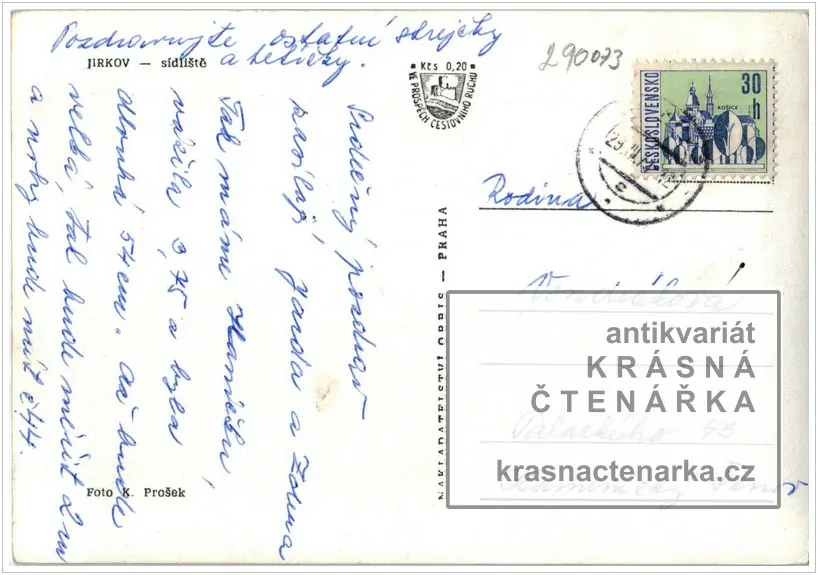 Pozdravujte ostatní strejčky
a tetičky.
JIRKOV — sídliště
Kčs 0,20
VE PROSPĚCH CESTOVNÍHO RUCHU
290073
ČESKOSLOVENSKO
30 h
KOŠICE
Srdečný pozdrav
zasílají Jarda a Zdena
Tak máme Haničku,
vážila 3,75 a byla
dlouhá 54 cm. Až bude
velká, tak bude měřit 2 m
a nohy bude mít č 44.
Foto K. Prošek
NAKLADATELSTVÍ ORBIS — PRAHA
Rodina
Vondráčková
Palackého 43
Kamenický Šenov
antikvariát
KRÁSNÁ
ČTENÁŘKA
krasnactenarka.cz